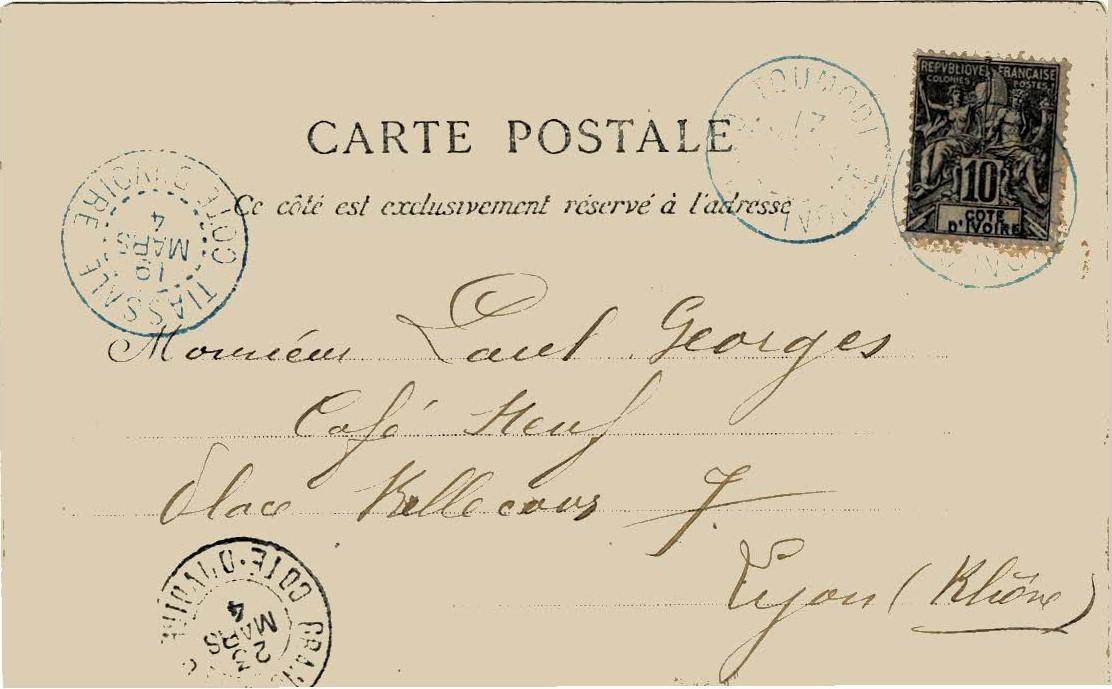 REPVBLIQVE FRANÇAISE
COLONIES POSTES
10
COTE
D'IVOIRE
TOUMODI
27
CARTE POSTALE
Ce côté est exclusivement réservé à l'adresse
COTE D'IVOIRE
TIASSALE
19
MARS
4
Monsieur Paul Georges
Café Neuf
Place Bellecour 7
Lyon (Rhône)
COTE-D'IVOIRE
GRAN
MARS
4